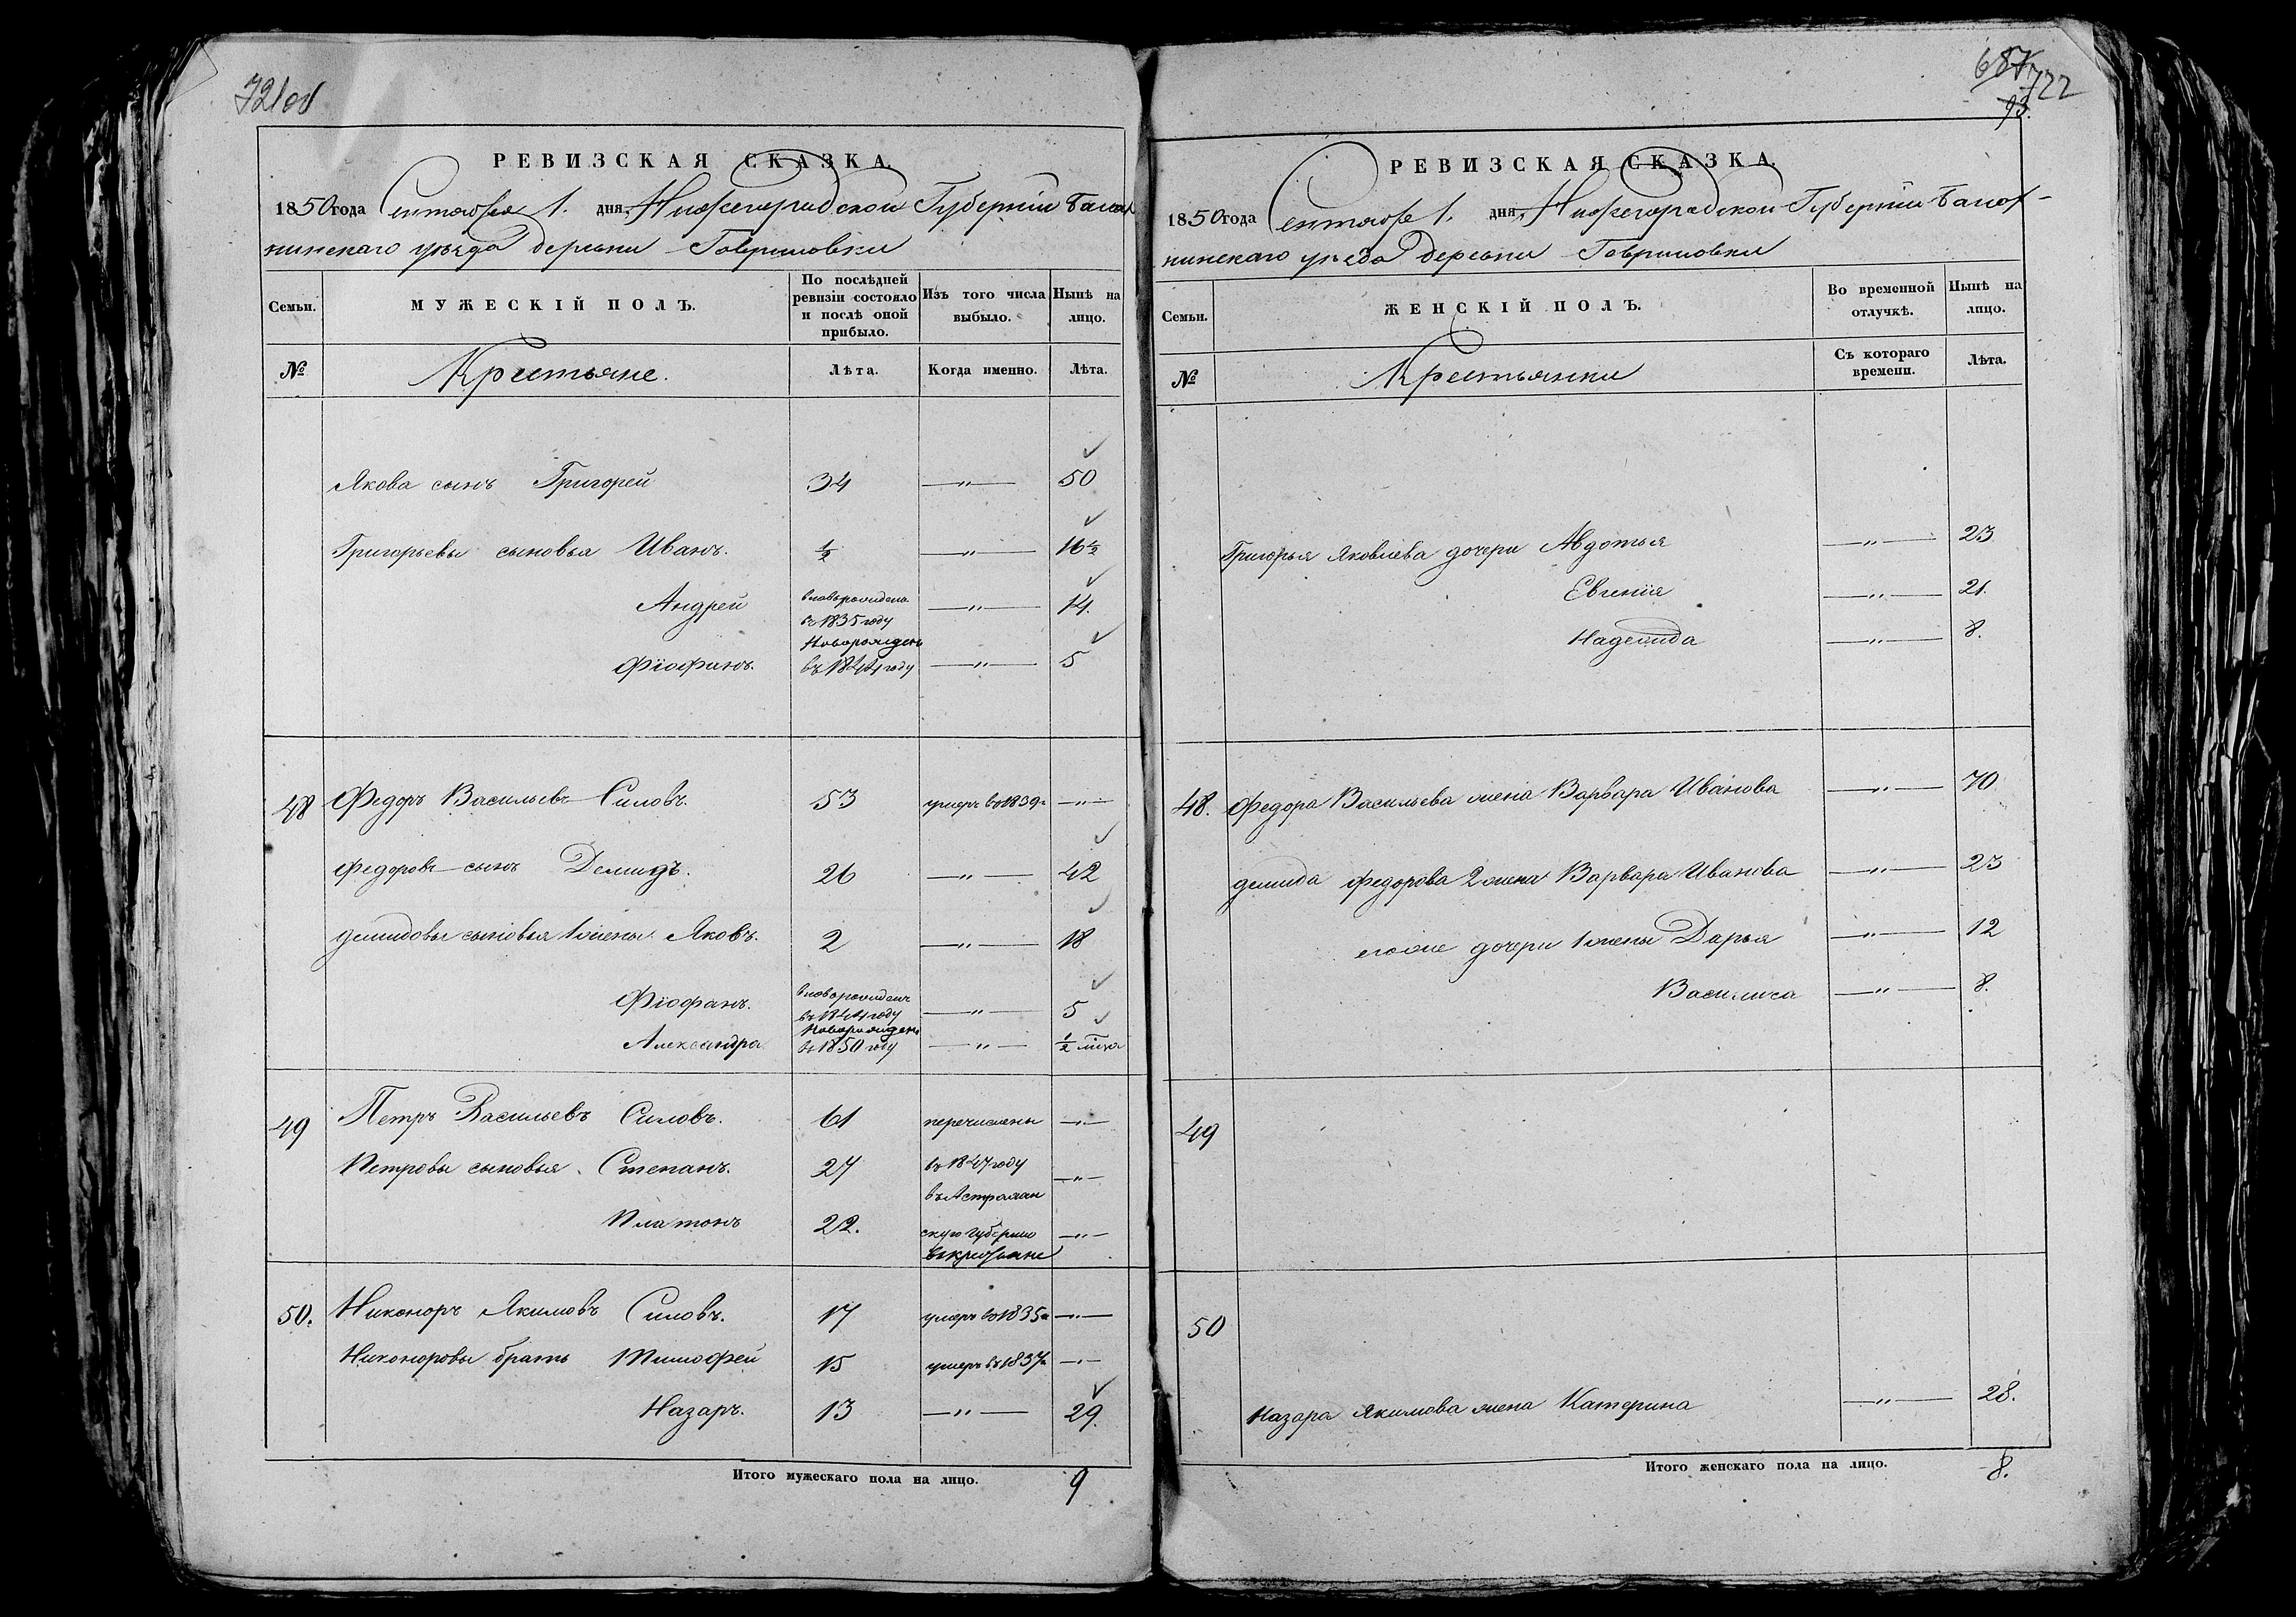 721об
РЕВИЗСКАЯ СКАЗКА.
1850 года Сентября 1. дня, Нижегородской Губернiи Балах
нинскаго уѣзда деревни Гавриловки
Семьи.
МУЖЕСКIЙ ПОЛЪ.
По послѣдней
ревизiи состояло
и послѣ оной
прибыло.
Изъ того числа
выбыло.
Нынѣ на
лицо.
№
Крестьяне.
Лѣта.
Когда именно.
Лѣта.
Якова сынъ Григорей 34 —"— 50
Григорьевы сыновья Иванъ. 1/2 —"— 16 1/2
Андрей вновьрожденъ —"— 14.
въ 1835 году
Новорожденъ
Фiофанъ. въ 1844 году —"— 5
48 Федоръ Васильевъ Силовъ. 53 умеръ въ 1839г —"—
Федоровъ сынъ Демидъ. 26 —"— 42
Демидовы сыновья 1 жены Яковъ. 2 —"— 18
Фiофанъ. вноворожденъ —"— 5
въ 1844 году
Новорожденъ
Александра въ 1850 году —"— 1/2 мѣца
49 Петръ Васильевъ Силовъ. 61 перечислены —"—
Петровы сыновья Степанъ. 27 въ 1847 году —"—
въ Астрахан
Платонъ 22. скую губернiю —"—
въ крестьяне
50. Никоноръ Якимовъ Силовъ. 17 умеръ въ 1835г —"—
Никоноровы братья Тимофей 15 умеръ въ 1837г —"—
Назаръ. 13 —"— 29.
Итого мужескаго пола на лицо. 9
687
722
93.
РЕВИЗСКАЯ СКАЗКА.
1850 года Сентября 1. дня, Нижегородской Губернiи Балах-
нинскаго уѣзда деревни Гавриловки
Семьи.
ЖЕНСКIЙ ПОЛЪ.
Во временной
отлучкѣ.
Нынѣ на
лицо.
№
Крестьянки
Съ котораго
времени.
Лѣта.
Григорья Яковлева дочери Авдотья —"— 23
Евгенiя —"— 21.
Надежда —"— 8.
48. Федора Васильева жена Варвара Иванова —"— 70
Демида Федорова 2 жена Варвара Иванова —"— 23
егоже дочери 1 жены Дарья —"— 12
Василиса —"— 8.
49
50
Назара Якимова жена Катерина —"— 28.
Итого женскаго пола на лицо. 8.